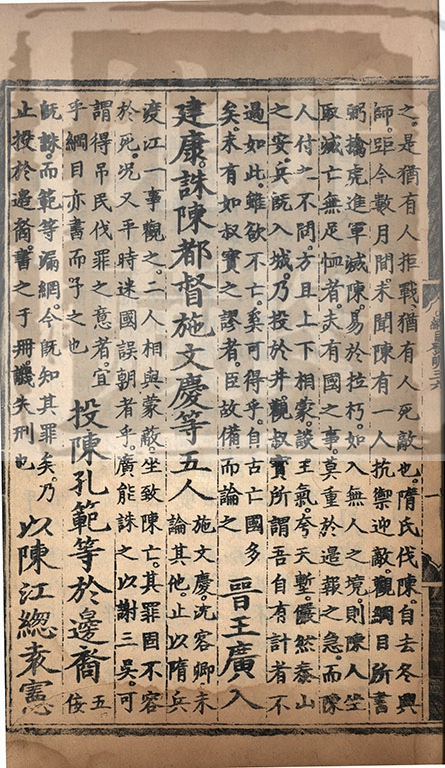 之。是猶有人拒戰猶有人死敵也。隋氏伐陳。自去冬興
師。距今數月間未聞陳有一人抗禦迎敵。觀綱目所書
弼擒虎進軍滅陳。易於拉朽。如入無人之境。則陳人坐
取滅亡無足恤者。夫有國之事。莫重於邊報之急。而陳
人付之不問。方且上下相蒙。談王氣。夸天塹。儼然泰山
之安。兵既入城。乃投於井。觀叔寶所謂吾自有計者不
過如此。雖欲不亡。奚可得乎。自古亡國多
矣。未有如叔寶之謬者。臣故備而論之
晉王廣入
建康。誅陳都督施文慶等五人
施文慶。沈客卿未
論其他。止以隋兵
渡江一事觀之。二人相與蒙蔽。坐致陳亡。其罪固不容
於死。況又平時迷國誤朝者乎。廣能誅之以謝三吳。可
謂得弔民伐罪之意者。宜
乎綱目亦書而予之也
投陳孔範等於邊裔
五佞
既誅。而範等漏網。今既知其罪矣。乃
止投於邊裔。書之于冊。譏失刑也
以陳江總袁憲